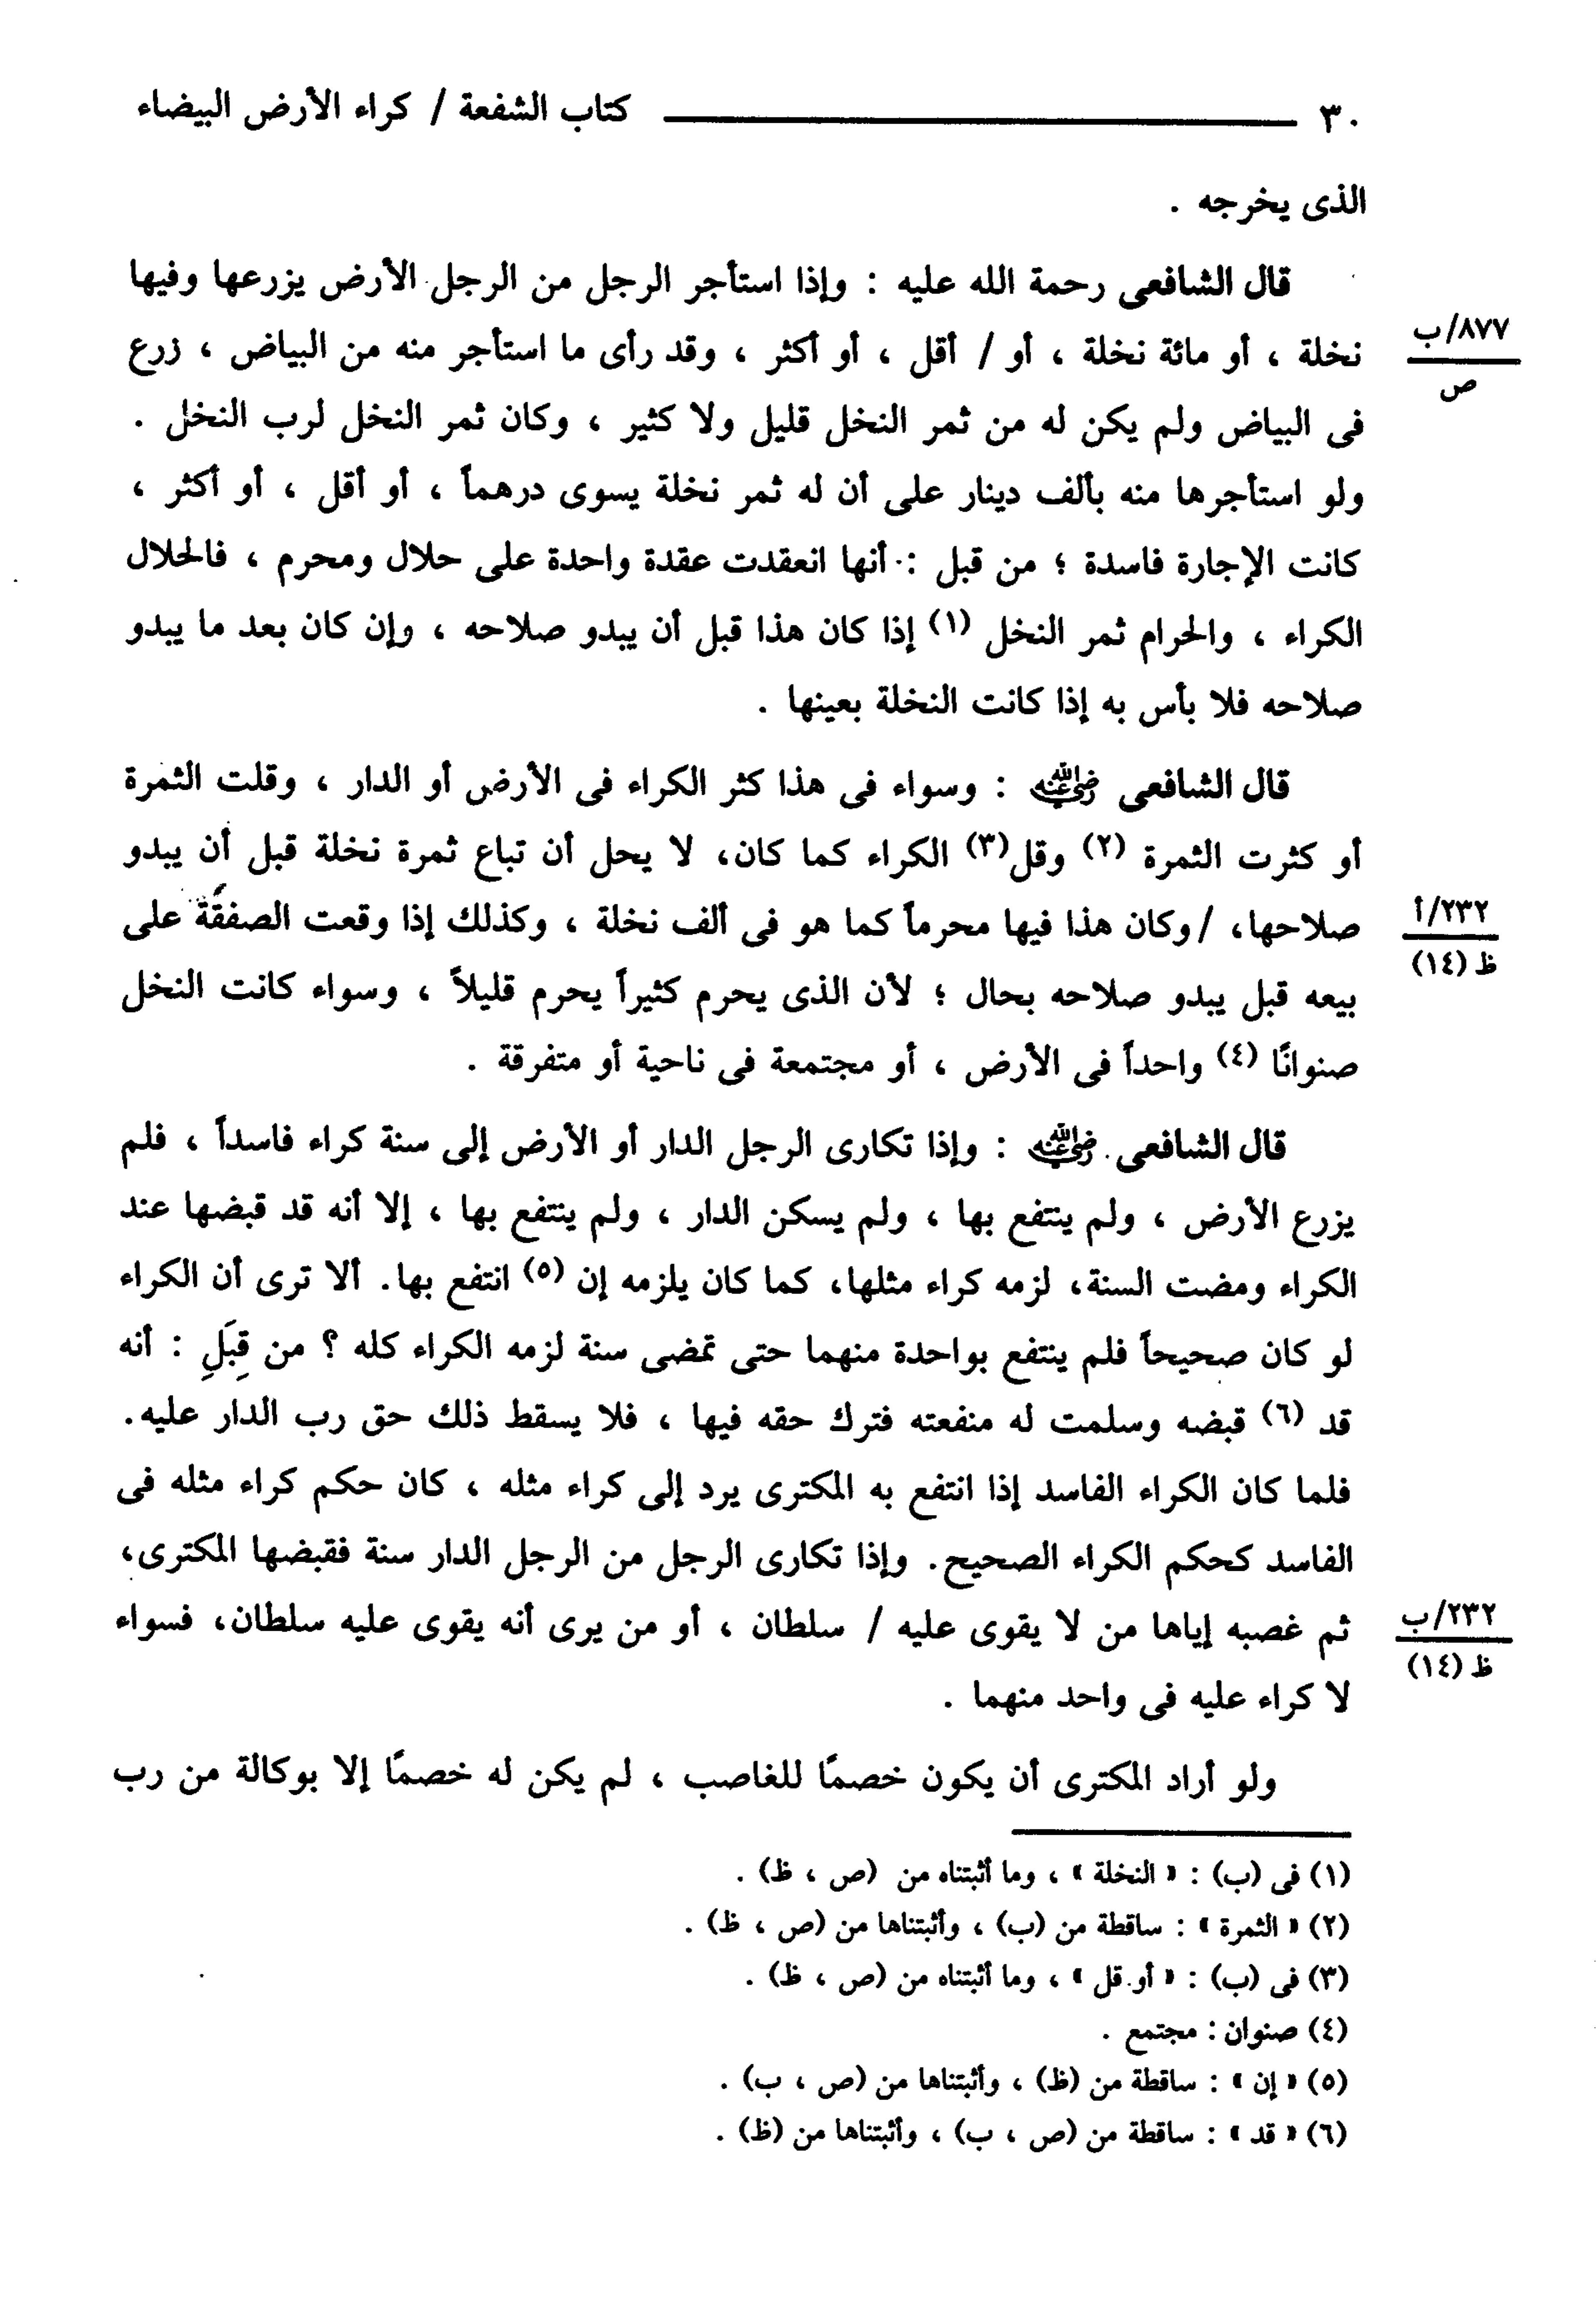 ٣٠ كتاب الشفعة / كراء الأرض البيضاء
الذى يخرجه .
قال الشافعى رحمة الله عليه : وإذا استأجر الرجل من الرجل الأرض يزرعها وفيها
نخلة ، أو مائة نخلة ، أو / أقل ، أو أكثر ، وقد رأى ما استأجر منه من البياض ، زرع
٨٧٧/ب
ص
فى البياض ولم يكن له من ثمر النخل قليل ولا كثير ، وكان ثمر النخل لرب النخل .
ولو استأجرها منه بألف دينار على أن له ثمر نخلة يسوى درهماً ، أو أقل ، أو أكثر ،
كانت الإجارة فاسدة ؛ من قبل : أنها انعقدت عقدة واحدة على حلال ومحرم ، فالحلال
الكراء ، والحرام ثمر النخل (١) إذا كان هذا قبل أن يبدو صلاحه ، وإن كان بعد ما يبدو
صلاحه فلا بأس به إذا كانت النخلة بعينها .
قال الشافعى رضي الله عنه : وسواء فى هذا كثر الكراء فى الأرض أو الدار ، وقلت الثمرة
أو كثرت الثمرة (٢) وقل(٣) الكراء كما كان، لا يحل أن تباع ثمرة نخلة قبل أن يبدو
صلاحها، /وكان هذا فيها محرماً كما هو فى ألف نخلة ، وكذلك إذا وقعت الصفقة على
٢٣٢/أ
ظ (١٤)
بيعه قبل يبدو صلاحه بحال ؛ لأن الذى يحرم كثيراً يحرم قليلاً ، وسواء كانت النخل
صنوانًا (٤) واحداً فى الأرض ، أو مجتمعة فى ناحية أو متفرقة .
قال الشافعى رضي الله عنه : وإذا تكارى الرجل الدار أو الأرض إلى سنة كراء فاسداً ، فلم
يزرع الأرض ، ولم ينتفع بها ، ولم يسكن الدار ، ولم ينتفع بها ، إلا أنه قد قبضها عند
الكراء ومضت السنة، لزمه كراء مثلها، كما كان يلزمه إن (٥) انتفع بها. ألا ترى أن الكراء
لو كان صحيحاً فلم ينتفع بواحدة منهما حتى تمضى سنة لزمه الكراء كله ؟ من قِبَلِ : أنه
قد (٦) قبضه وسلمت له منفعته فترك حقه فيها ، فلا يسقط ذلك حق رب الدار عليه.
فلما كان الكراء الفاسد إذا انتفع به المكترى يرد إلى كراء مثله ، كان حكم كراء مثله فى
الفاسد كحكم الكراء الصحيح. وإذا تكارى الرجل من الرجل الدار سنة فقبضها المكترى،
ثم غصبه إياها من لا يقوى عليه / سلطان ، أو من يرى أنه يقوى عليه سلطان، فسواء
٢٣٢/ب
ظ (١٤)
لا كراء عليه فى واحد منهما .
ولو أراد المكترى أن يكون خصمًا للغاصب ، لم يكن له خصمًا إلا بوكالة من رب
(١) فى (ب) : « النخلة » ، وما أثبتناه من (ص ، ظ) .
(٢) « الثمرة » : ساقطة من (ب) ، وأثبتناها من (ص ، ظ) .
(٣) فى (ب) : « أو قل » ، وما أثبتناه من (ص ، ظ) .
(٤) صنوان : مجتمع .
(٥) « إن » : ساقطة من (ظ) ، وأثبتناها من (ص ، ب) .
(٦) « قد » : ساقطة من (ص ، ب) ، وأثبتناها من (ظ) .